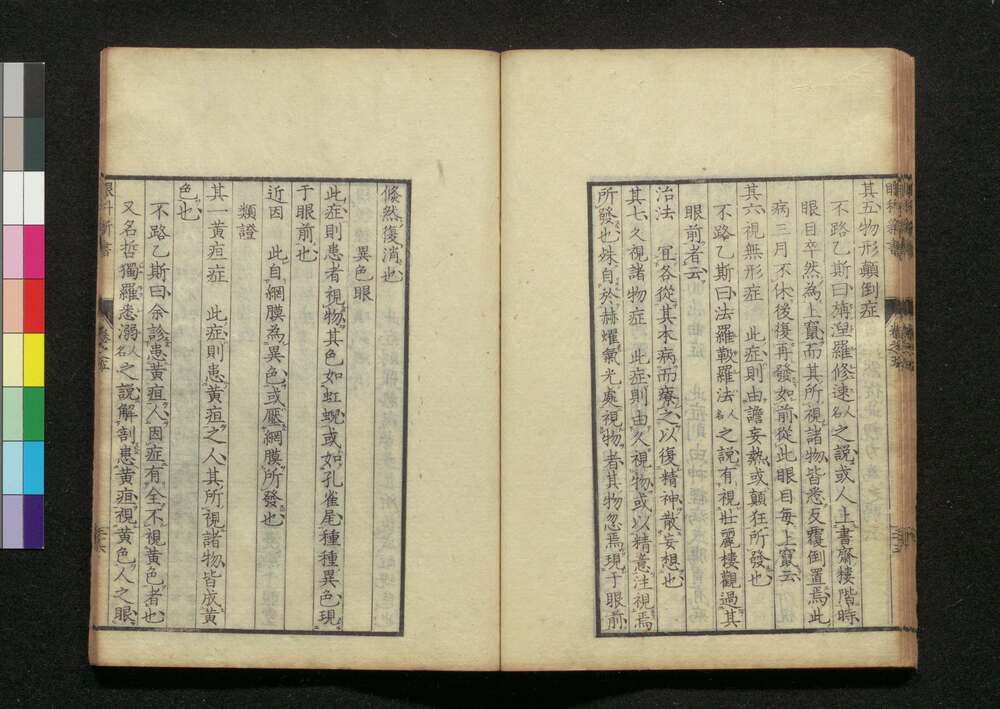 其五物形顛倒症
不路乙斯曰滿湼羅修速人名之説或人上書齋樓階時
眼目卒然為上竄而其所視諸物皆悉反覆倒置焉此
病三月不休後復再發如前從此眼目每上竄云
其六視無形症　此症則由譫妄熱或顛狂所發也
不路乙斯曰法羅敕羅法人名之説有視壯麗樓觀過其
眼前者云
治法　宜各從其本病而療之以復精神散妄想也
其七久視諸物症　此症則由久視物或以精意注視焉
所發也殊自於赫燿氣光處視物者其物忽焉現于眼前
倏然復消也
異色眼
此症則患者視物其色如虹蜺或如孔雀尾種種異色現
于眼前也
近因　此自網膜為異色或壓網膜所發也
類證
其一黃疸症　此症則患黃疸之人其所視諸物皆成黃
色也
不路乙斯曰余診患黃疸人因症有全不視黃色者也
又名哲獨羅悉溺人名之説解剖患黃疸視黃色人之眼
眼科新書　卷之五